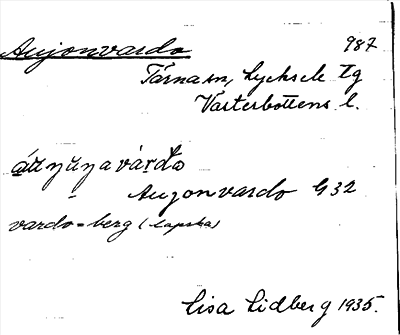 Aujonvardo 987
Tärna sn, Lycksele tg
Västerbottens l.
áuŋuŋa várdo
" Aujonvardo G32
vardo = berg (lapska)
Lisa Lidberg 1935.